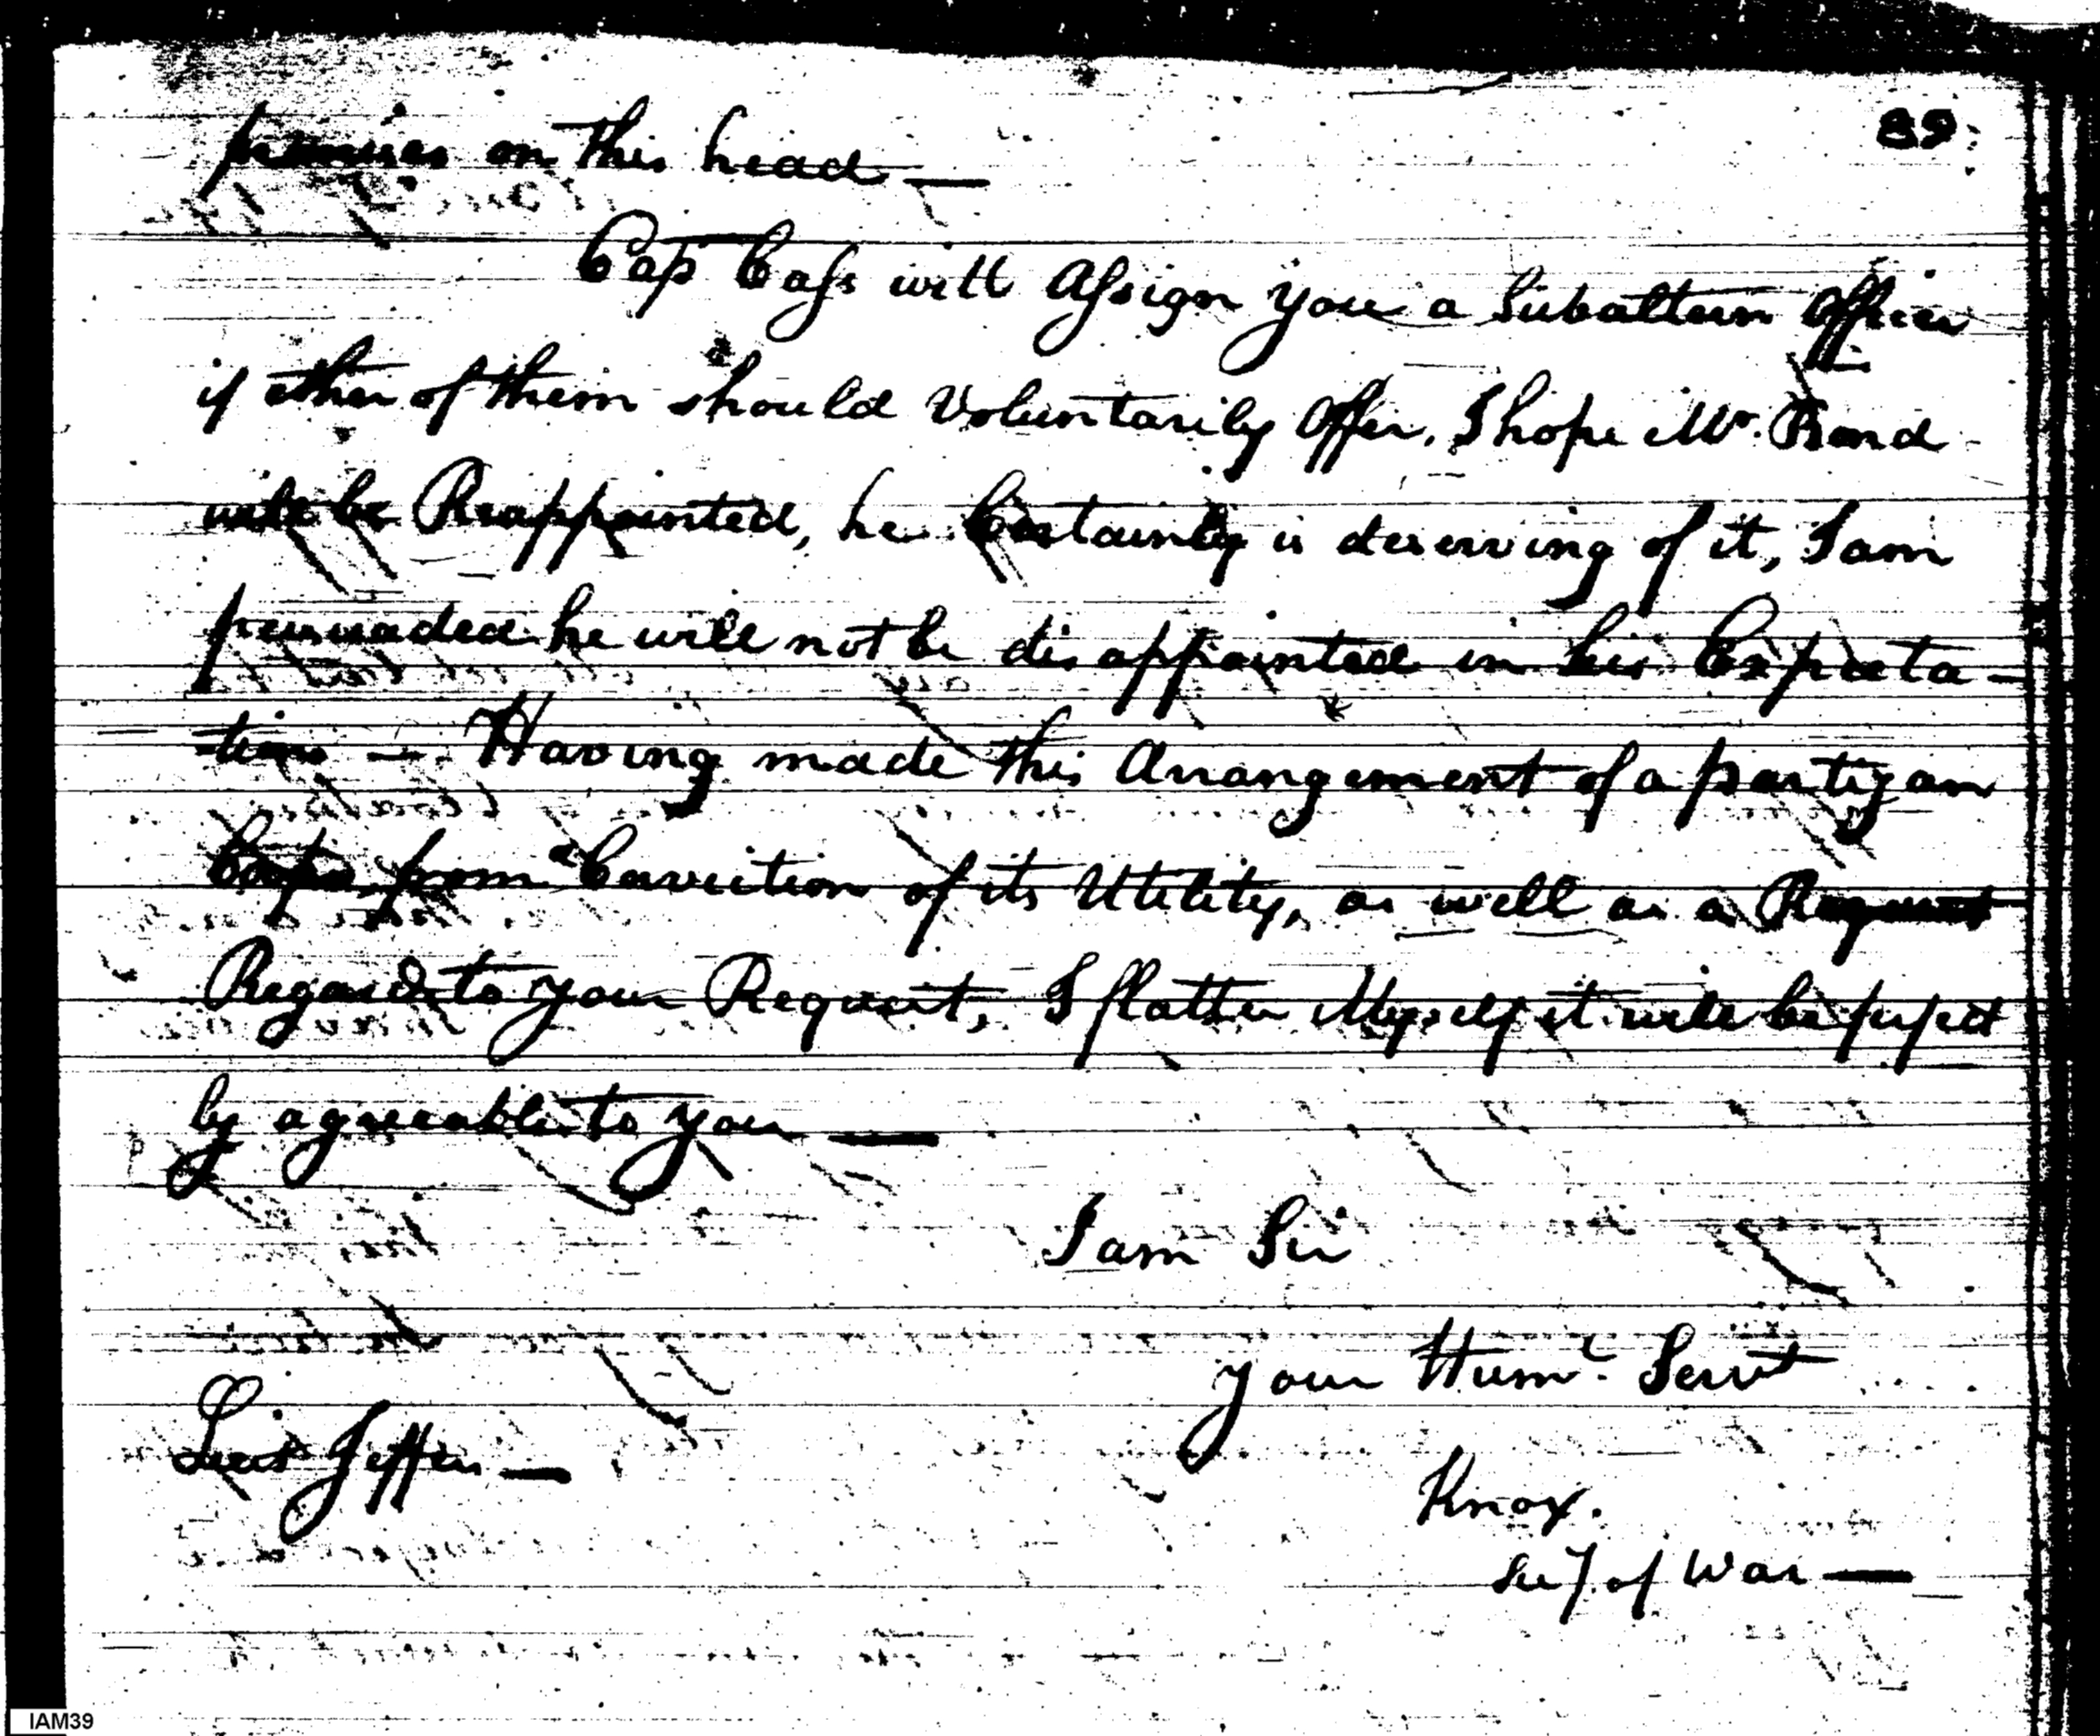 89
promises on this head —
Cap Cass will Assign you a Subaltern Officer
if ether of them should Voluntarily Offer. I hope Mr. Bond
will be Reappointed, he Certainly is deserving of it, I am
persuaded he will not be disappointed in his Expecta-
tions — Having made this Arrangement of a partizan
Corps from a Conviction of its Utility, as well as a Request
Regard to your Request, I flatter Myself it will be perfect
ly agreeable to you —
I am Sir
your Huml. Servt
Lieut Jeffers —
Knox.
Secy. of War —
IAM39